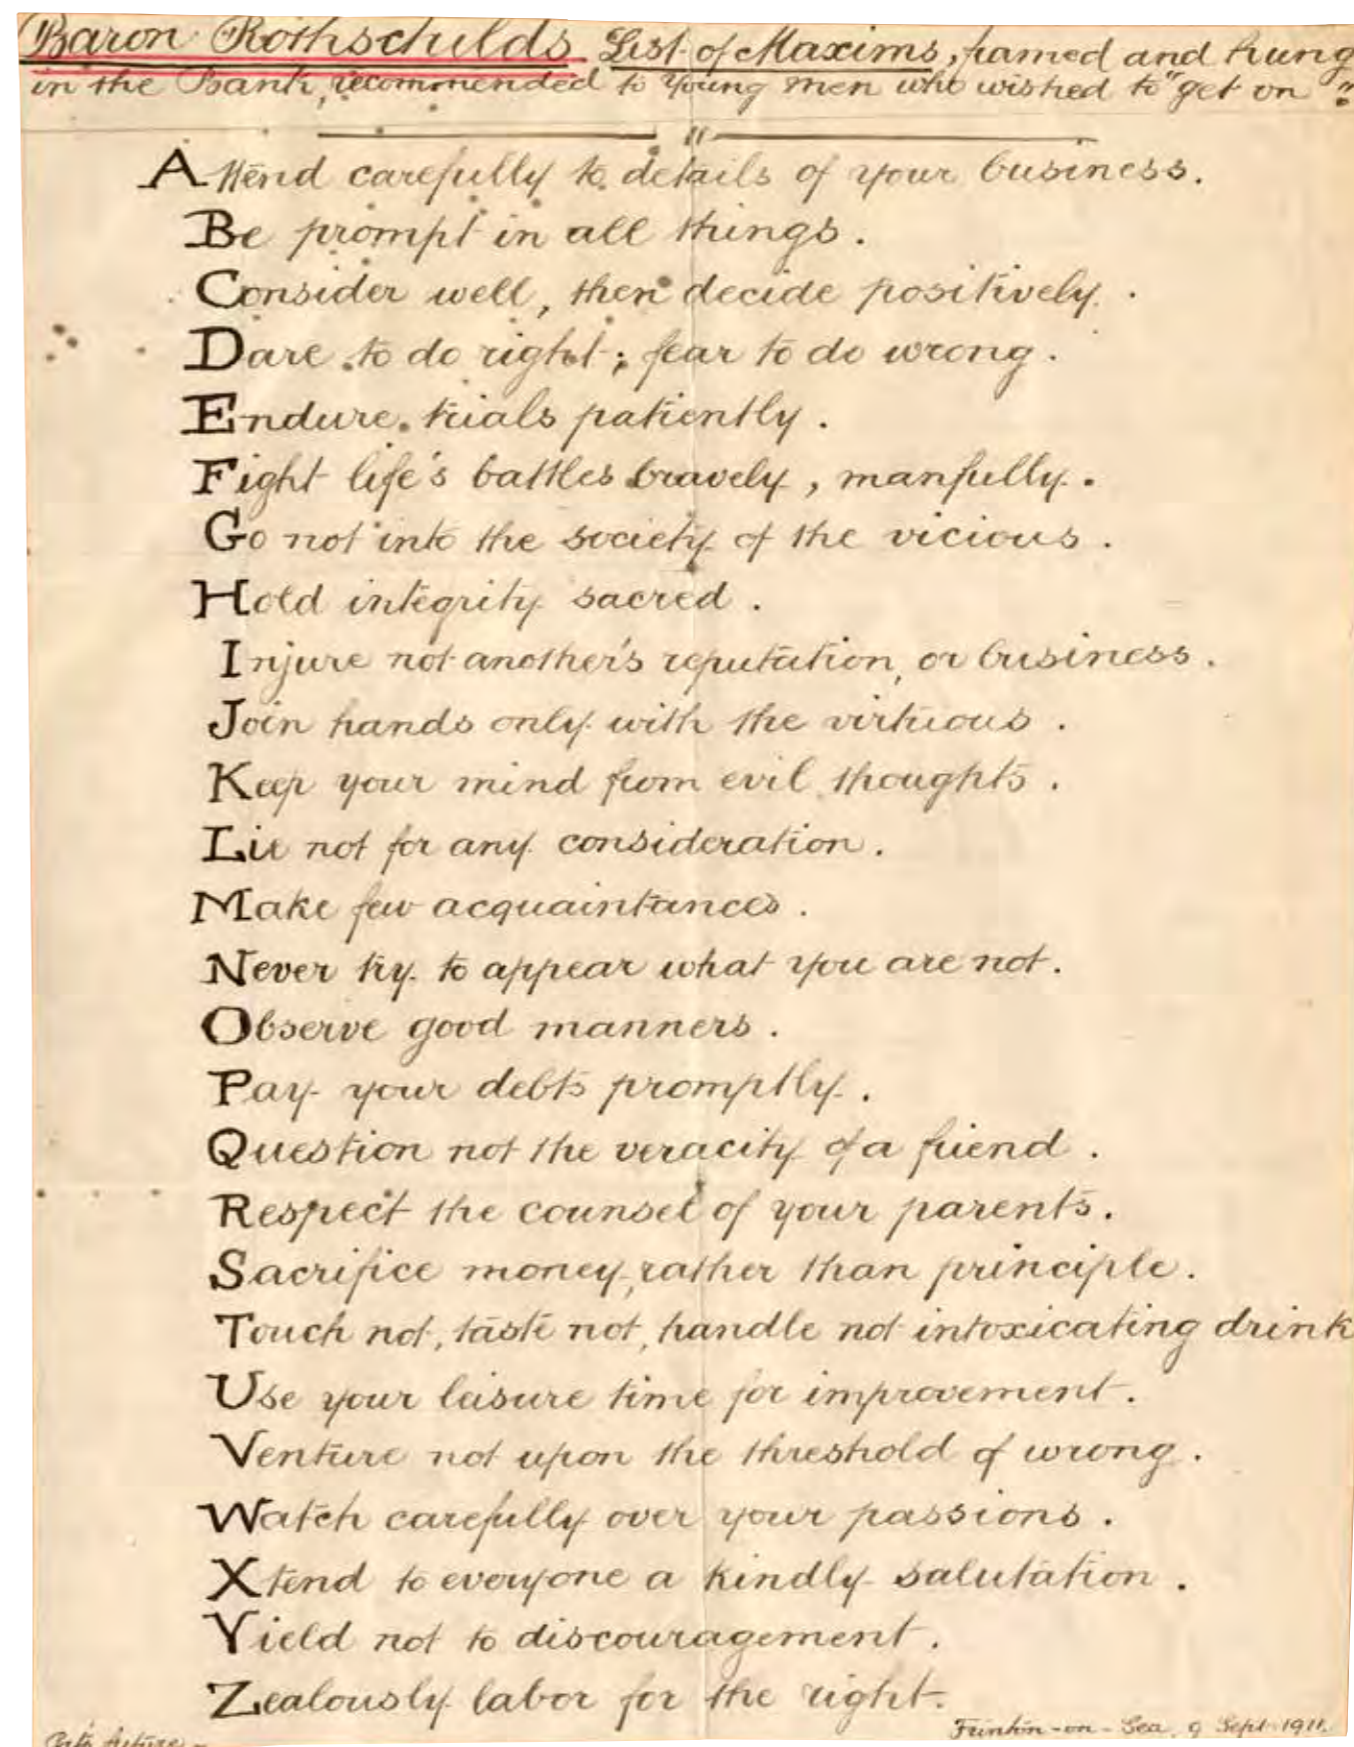 Baron Rothschilds List of Maxims, framed and hung
in the Bank, recommended to Young men who wished to "get on".
Attend carefully to details of your business.
Be prompt in all things.
Consider well, then decide positively.
Dare to do right; fear to do wrong.
Endure trials patiently.
Fight life's battles bravely, manfully.
Go not into the society of the vicious.
Hold integrity sacred.
Injure not another's reputation, or business.
Join hands only with the virtuous.
Keep your mind from evil thoughts.
Lie not for any consideration.
Make few acquaintances.
Never try to appear what you are not.
Observe good manners.
Pay your debts promptly.
Question not the veracity of a friend.
Respect the counsel of your parents.
Sacrifice money, rather than principle.
Touch not, taste not, handle not intoxicating drink
Use your leisure time for improvement.
Venture not upon the threshold of wrong.
Watch carefully over your passions.
Xtend to everyone a kindly salutation.
Yield not to discouragement.
Zealously labor for the right.
Frinton-on-Sea, 9 Sept. 1911.